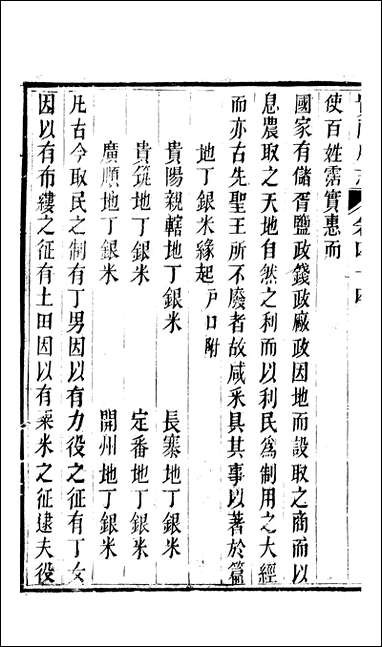 使百姓霑實惠而
國家有儲胥鹽政錢政廠政因地而設取之商而以
息農取之天地自然之利而以利民爲制用之大經
而亦古先聖王所不廢者故咸釆具其事以著於篇
地丁銀米緣起戶口附
貴陽親轄地丁銀米 長寨地丁銀米
貴筑地丁銀米 定番地丁銀米
廣順地丁銀米 開州地丁銀米
凡古今取民之制有丁男因以有力役之征有丁女
因以有布縷之征有土田因以有粟米之征逮夫役